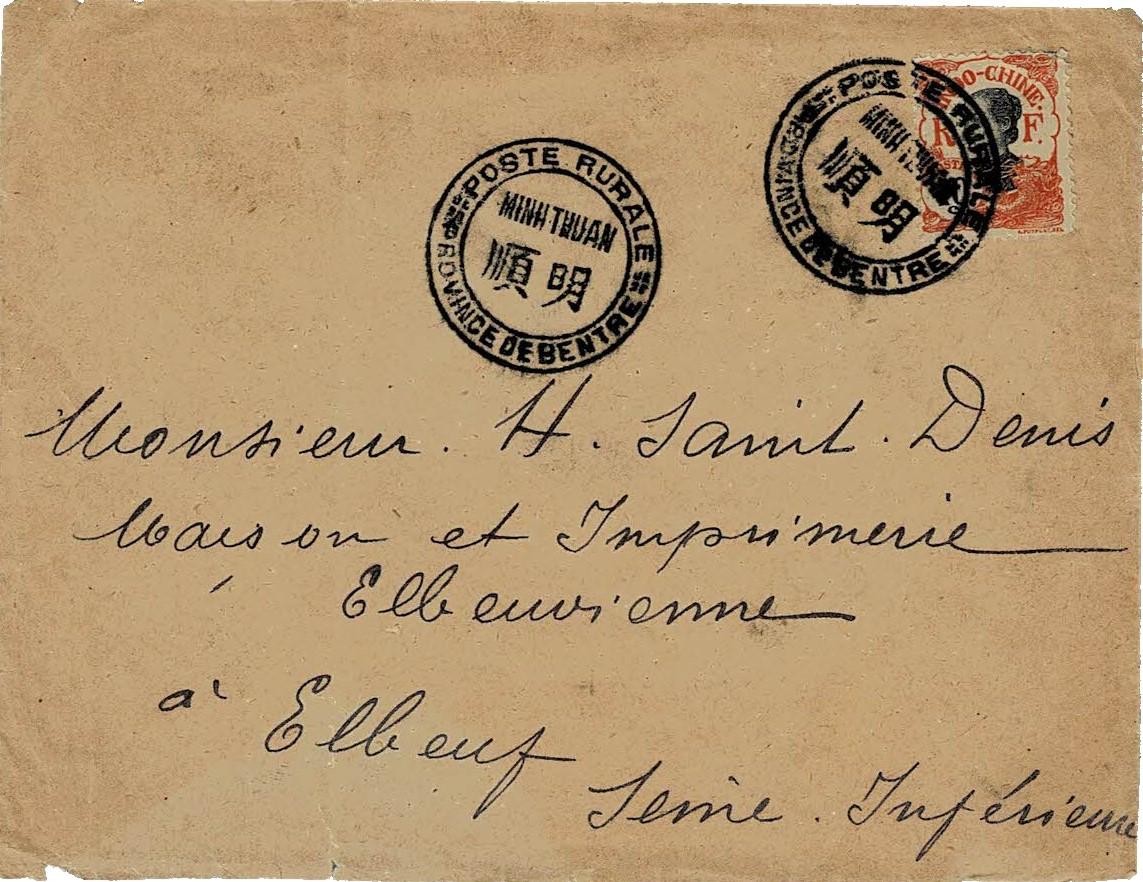 POSTE RURALE
MINH THUAN
順明
PROVINCE DE BENTRE
POSTE RURALE
MINH THUAN
順明
PROVINCE DE BENTRE
INDO-CHINE.
R F.
Monsieur. H. Saint. Denis
Maison et Imprimerie
Elbeuvienne
à Elbeuf
Seine. Inférieure